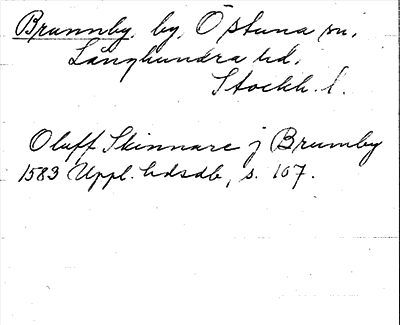 Brunnby, by, Östuna sn,
Långhundra hd,
Stockh. l.
Oluff Skinnare j Brumby
1583 Uppl. hdsdb, s. 107.